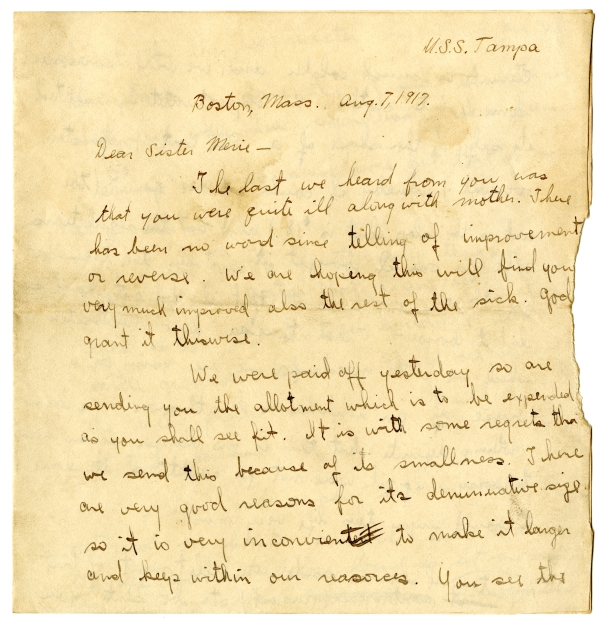 U.S.S. Tampa
Boston, Mass. Aug. 7, 1917.
Dear Sister Merie -
The last we heard from you was
that you were quite ill along with mother. There
has been no word since telling of improvement
or reverse. We are hoping this will find you
very much improved also the rest of the sick. God
grant it thiswise.
We were paid off yesterday so are
sending you the allotment which is to be expended
as you shall see fit. It is with some regrets tha
we send this because of its smallness. There
are very good reasons for its denunuative size.
so it is very inconvient to make it larger
and keep within our reasorces. You see the